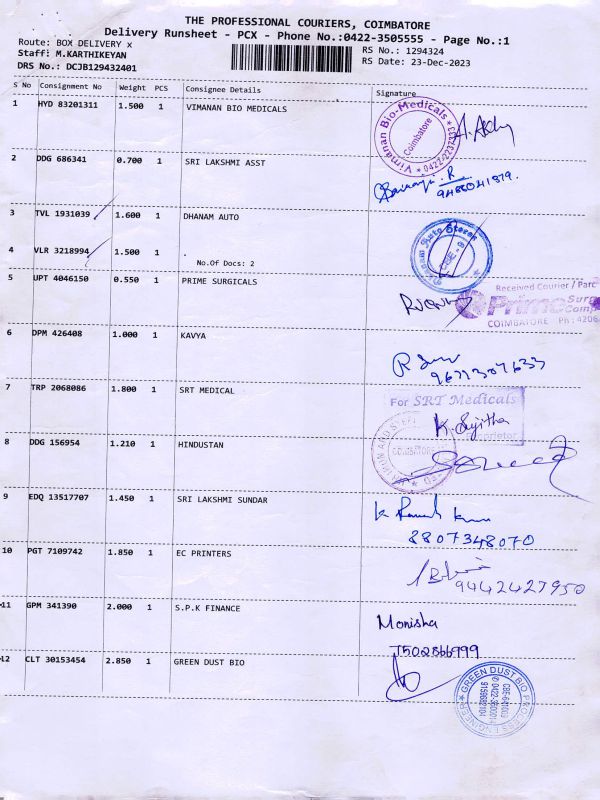 THE PROFESSIONAL COURIERS, COIMBATORE
Delivery Runsheet - PCX - Phone No.:0422-3505555 - Page No.:1
Route: BOX DELIVERY x
Staff: M.KARTHIKEYAN
DRS No.: DCJB129432401
RS No.: 1294324
RS Date: 23-Dec-2023
S No Consignment No Weight PCS Consignee Details Signature
1 HYD 83201311 1.500 1 VIMANAN BIO MEDICALS
Vimanan Bio-Medicals
Coimbatore
2 DDG 686341 0.700 1 SRI LAKSHMI ASST
3 TVL 1931039 1.600 1 DHANAM AUTO
4 VLR 3218994 1.500 1
No.Of Docs: 2
5 UPT 4046150 0.550 1 PRIME SURGICALS
Received Courier / Parc
Prime Surg
Comp
COIMBATORE Ph : 4206
6 DPM 426408 1.000 1 KAVYA
7 TRP 2068086 1.800 1 SRT MEDICAL
For SRT Medicals
K. Sujitha
8 DDG 156954 1.210 1 HINDUSTAN
9 EDQ 13517707 1.450 1 SRI LAKSHMI SUNDAR
8807348070
10 PGT 7109742 1.850 1 EC PRINTERS
9442427950
11 GPM 341390 2.000 1 S.P.K FINANCE
Monisha
7502866999
12 CLT 30153454 2.850 1 GREEN DUST BIO
GREEN DUST BIO PROCESS ENGINEER